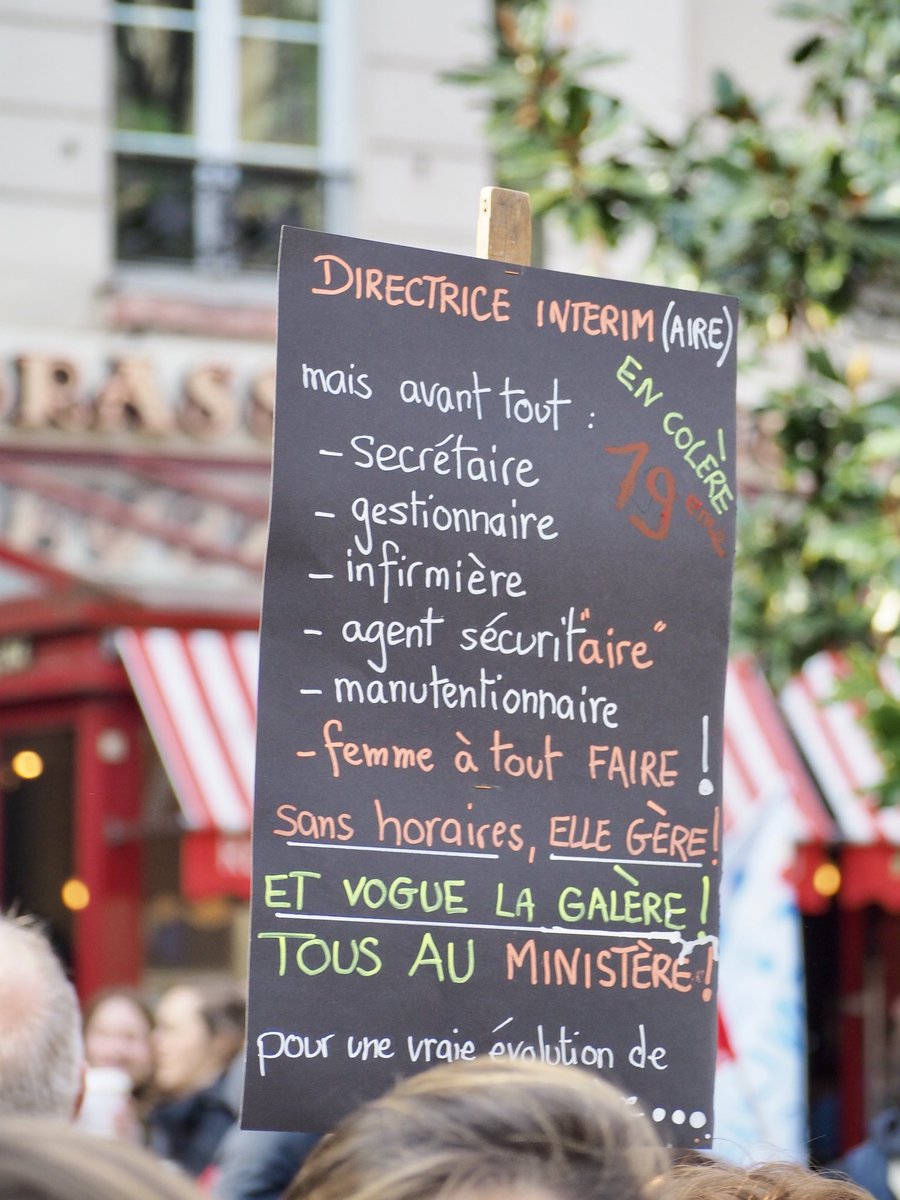 DIRECTRICE INTERIM (AIRE)
EN COLÈRE
19eme
mais avant tout :
- Secrétaire
- gestionnaire
- infirmière
- agent sécurit"aire"
- manutentionnaire
- femme à tout FAIRE !
sans horaires, ELLE GÈRE !
ET VOGUE LA GALÈRE !
TOUS AU MINISTÈRE !
pour une vraie évolution de
BRASS